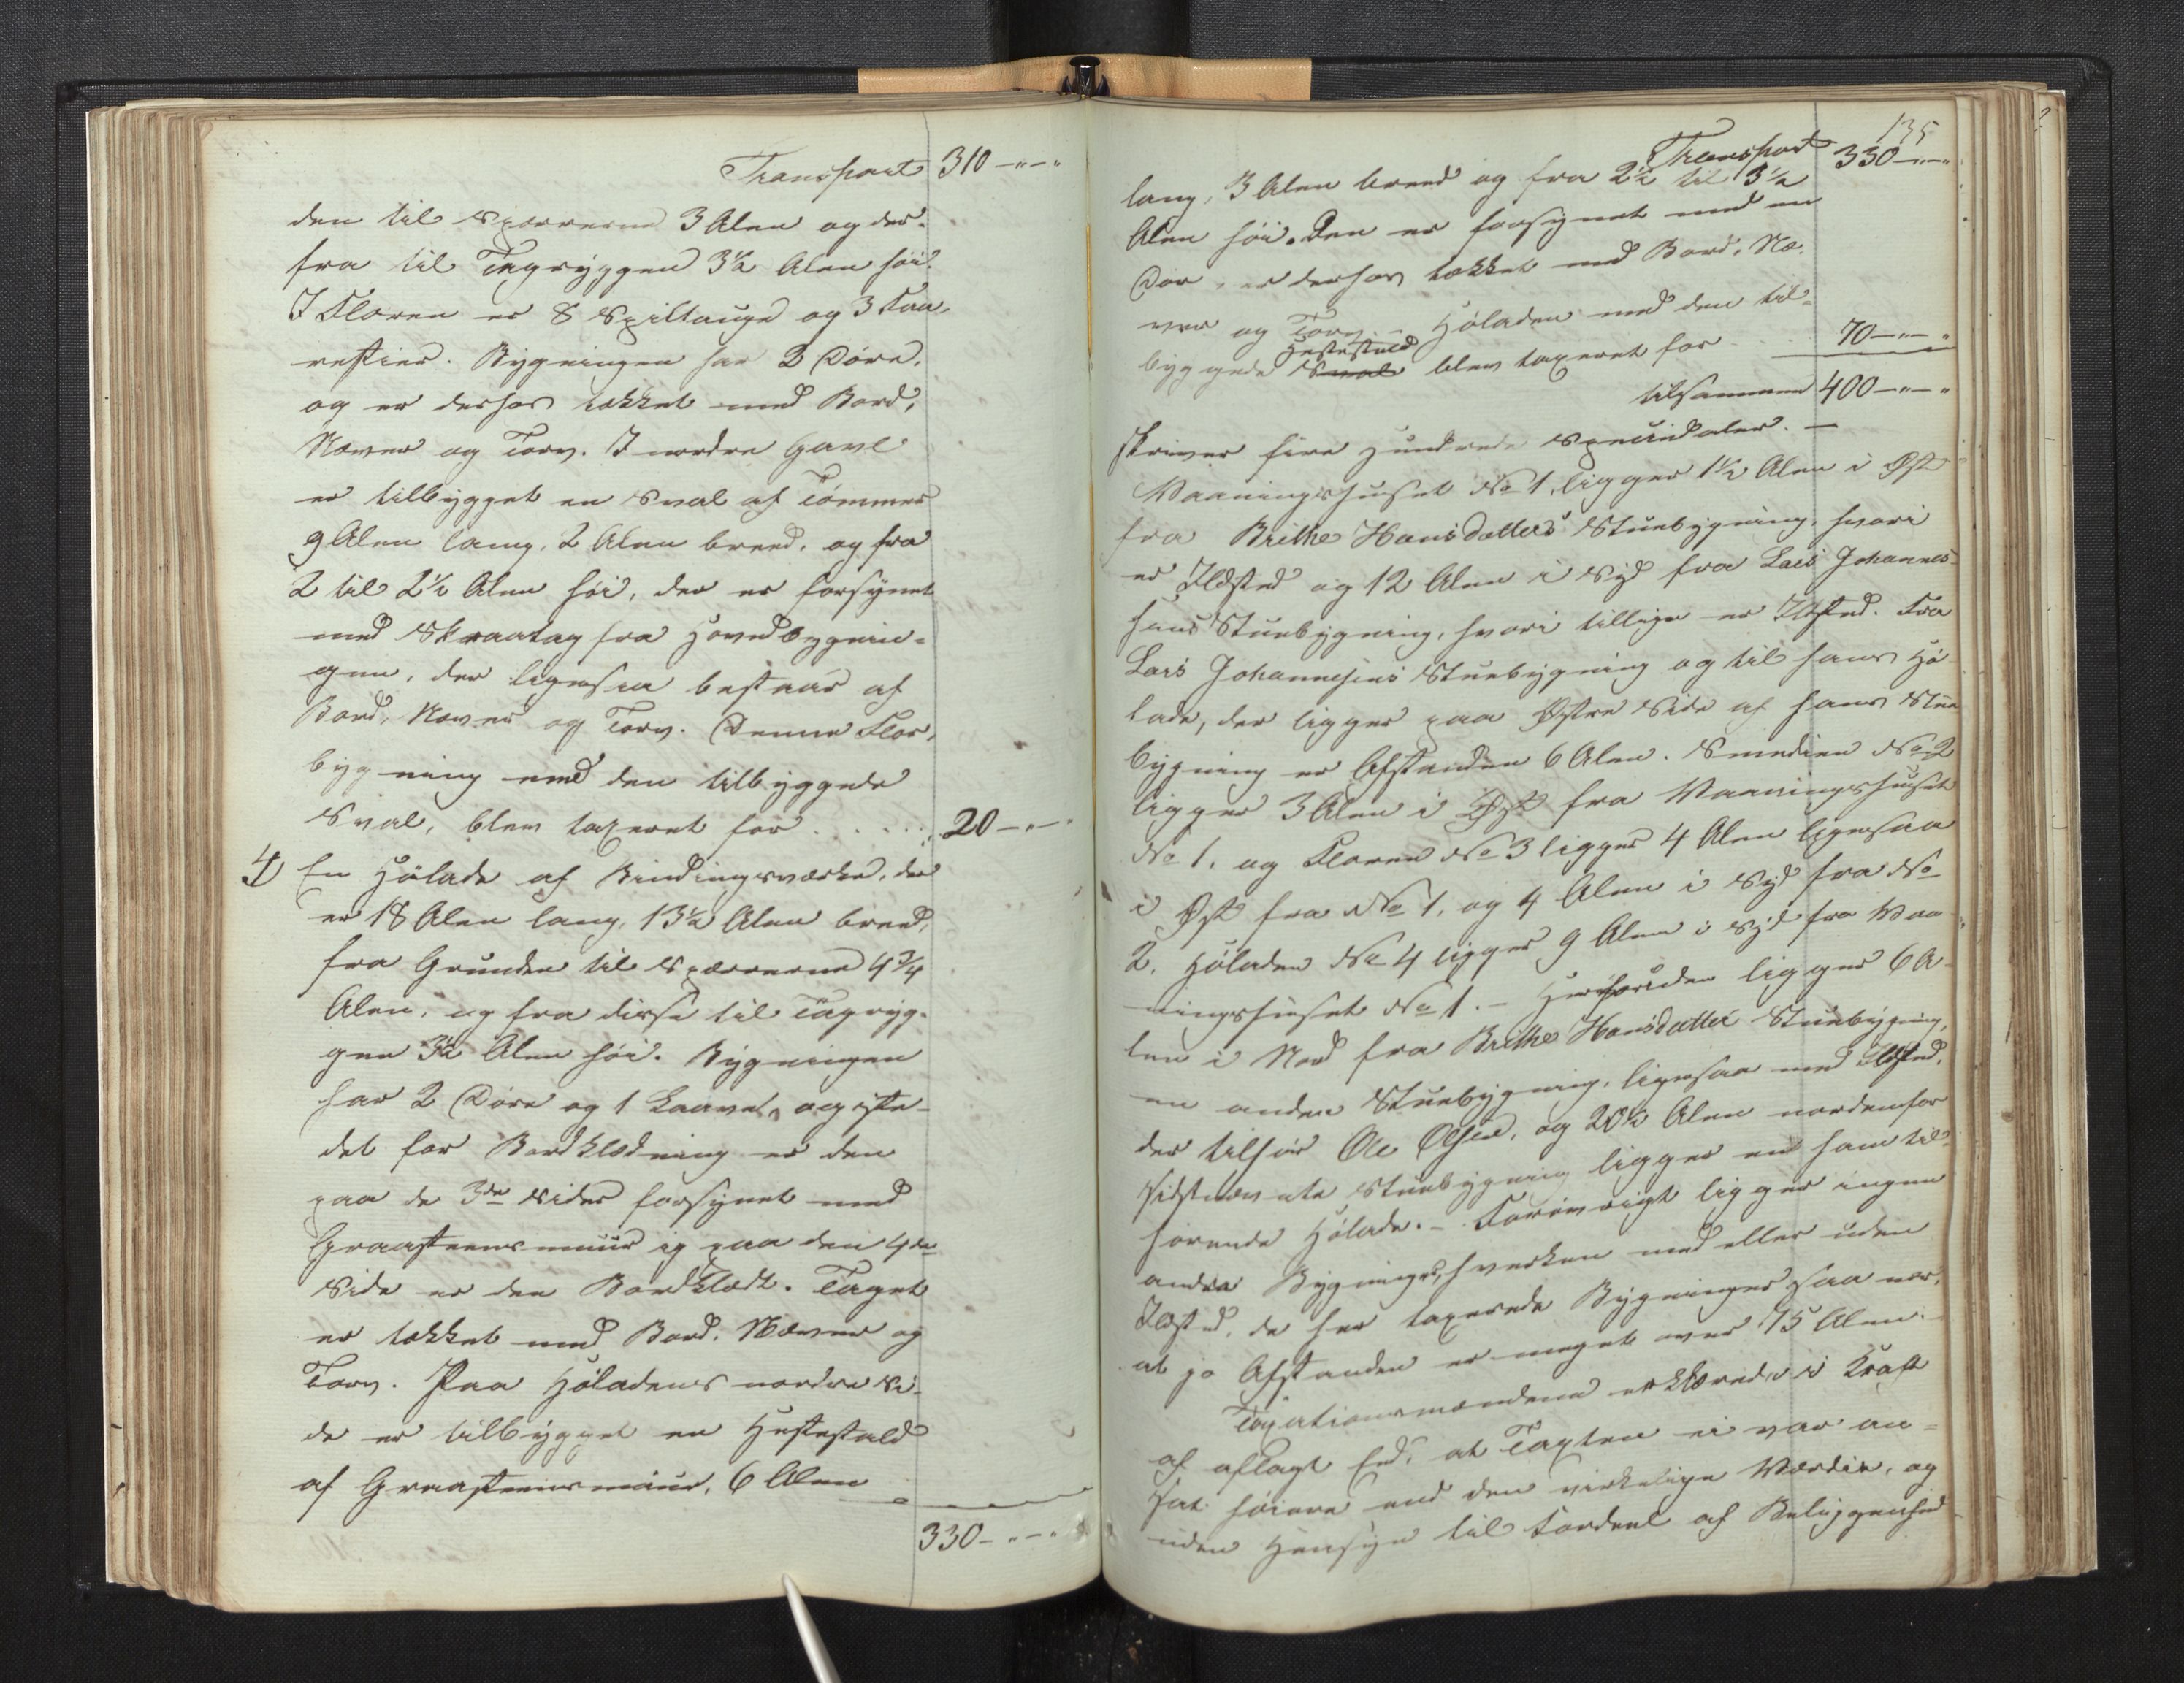 Transport 310 —"—"
den til Sparrerne 3 Alen og der-
fra til Tagryggen 3½ Alen höi.
I Floren er 8 Spiltauge og 3 Faa-
restier. Bygningen har 3 Döre,
og er derhos tækket med Bord,
Næver og Torv. I nordre Gavl
er tilbygget en Sval af Tömmer
9 Alen lang, 2 Alen breed, og fra
2 til 2½ Alen höi, der er forsynet
med Skraatag fra Hovedbygnin-
gen, der ligesaa bestaar af
Bord, Næver og Torv. Denne Flor-
bygning med den tilbyggede
Sval, blev taxeret for . . . . . . 20 —"—"
4) En Hölade af Bindingsværke, der
er 18 Alen lang, 13½ Alen breed,
fra Grunden til Sparrerne 4¾
Alen, og fra disse til Tagryg-
gen 3½ Alen höi. Bygningen
har 2 Döre og 1 Laavel, og iste-
det for Bordklædning er den
paa de 3de Sider forsynet med
Graasteensmuur og paa den 4de
Side er den Bordklædt. Taget
er tækket med Bord, Næver og
Torv. Paa Höladens nordre Si-
de er tilbygget en Hestestald
af Graasteensmuur, 6 Alen
330 —"—"
135
Transport 330 —"—"
lang, 3 Alen breed og fra 2½ til 3½
Alen höi. Den er forsynet med en
Dör, er derhos tækket med Bord, Næ-
ver og Torv. – Höladen med den til-
byggede Sval Hestestald blev taxeret for . . 70 —"—"
tilsammen 400 —"—"
skriver fire Hundrede Speciedaler. —
Vaaningshuset No 1, ligger 1½ Alen i Öst
fra Brithe Hansdatters Stuebygning, hvori
er Ildsted og 12 Alen i Syd fra Lars Johannes-
sens Stuebygning, hvori tillige er Ildsted. Fra
Lars Johannesens Stuebygning og til hans Hö-
lade, der ligger paa Östre Side af hans Stue
bygning er Afstanden 6 Alen. Smedien No 2
ligger 3 Alen i Öst fra Vaaningshuset
No 1. og Floren No 3 ligger 4 Alen ligesaa
i Öst fra No 1, og 4 Alen i Syd fra No
2. Höladen No 4 ligger 9 Alen i Syd fra Vaa-
ningshuset No 1. – Herforuden ligger 6 A-
len i Nord fra Brithe Hansdatter Stuebygning,
en anden Stuebygning, ligesaa med Ildsted,
der tilhör Ole Olsen, og 20½ Alen nordenfor
sidstnævnte Stuebygning ligger en ham til-
hörende Hölade. – Forövrigt ligger ingen
andre Bygninger, hverken med eller uden
Ildsted, de her taxerede Bygninger saa nær,
at jo Afstanden er meget over 15 Alen. –
Taxationsmændene erklærede i Kraft
af aflagt Eed, at Taxten ei var an-
sat höiere end den virkelige Værdie, og
uden Hensyn til Fordeel af Beliggenhed